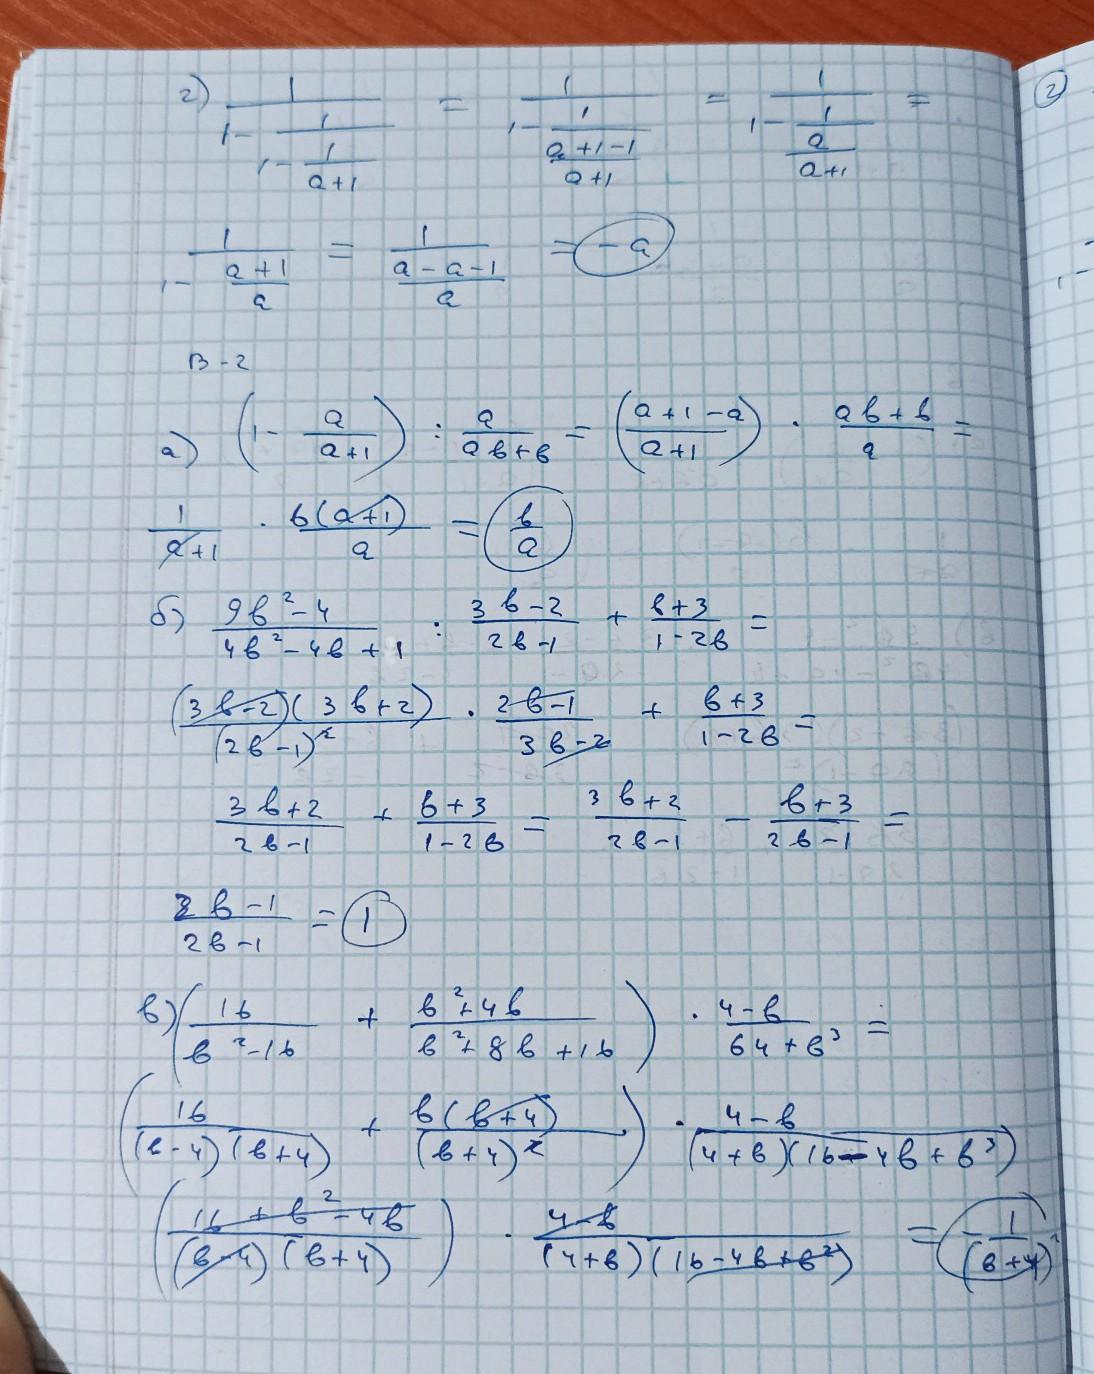 г) 1/(1 - 1/(1 - 1/(a+1))) = 1/(1 - 1/((a+1-1)/(a+1))) = 1/(1 - 1/(a/(a+1))) =
1/(1 - (a+1)/a) = 1/((a-a-1)/a) = -a
В-2
а) (1 - a/(a+1)) : a/(ab+b) = ((a+1-a)/(a+1)) · (ab+b)/a =
1/(a+1) · b(a+1)/a = b/a
б) (9b²-4)/(4b²-4b+1) : (3b-2)/(2b-1) + (b+3)/(1-2b) =
(3b-2)(3b+2)/(2b-1)² · (2b-1)/(3b-2) + (b+3)/(1-2b) =
(3b+2)/(2b-1) + (b+3)/(1-2b) = (3b+2)/(2b-1) - (b+3)/(2b-1) =
(2b-1)/(2b-1) = 1
в) (16/(b²-16) + (b²+4b)/(b²+8b+16)) · (4-b)/(64+b³) =
(16/((b-4)(b+4)) + b(b+4)/(b+4)²) · (4-b)/((4+b)(16-4b+b³))
((16+b²-4b)/((b-4)(b+4))) · (4-b)/((4+b)(16-4b+b²)) = -1/(b+4)²